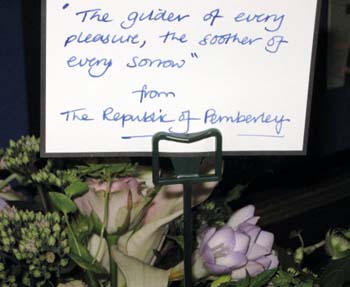 "The gilder of every
pleasure, the soother of
every sorrow"
from
The Republic of Pemberley